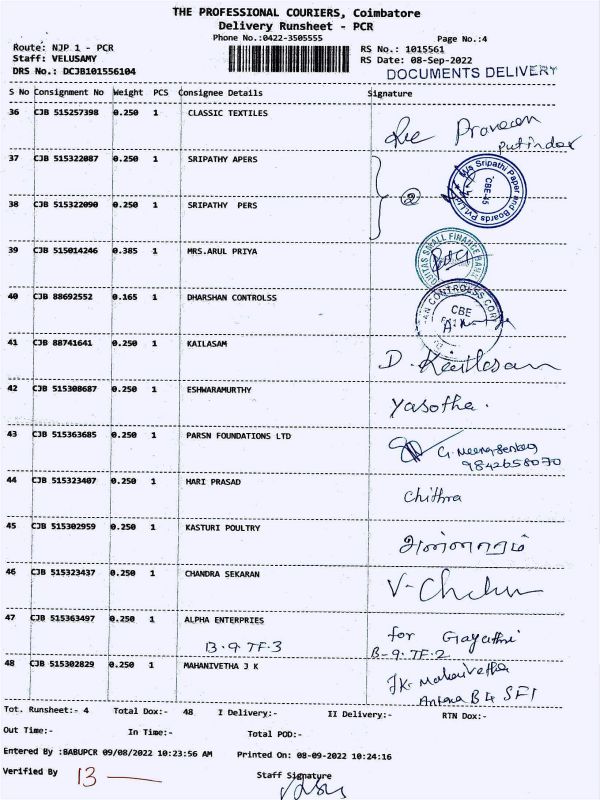 THE PROFESSIONAL COURIERS, Coimbatore
Delivery Runsheet - PCR
Phone No.:0422-3505555 Page No.:4
Route: NJP 1 - PCR RS No.: 1015561
Staff: VELUSAMY RS Date: 08-Sep-2022
DRS No.: DCJB101556104 DOCUMENTS DELIVERY
S No Consignment No Weight PCS Consignee Details Signature
36 CJB 515257398 0.250 1 CLASSIC TEXTILES Praveen
37 CJB 515322087 0.250 1 SRIPATHY APERS
M/s Sripathi Paper and Boards Pvt Ltd CBE-45
2
38 CJB 515322090 0.250 1 SRIPATHY PERS
39 CJB 515014246 0.385 1 MRS.ARUL PRIYA
SMALL FINANCE BANK
40 CJB 88692552 0.165 1 DHARSHAN CONTROLSS
CONTROLSS CBE
41 CJB 88741641 0.250 1 KAILASAM D. Kailasam
42 CJB 515308687 0.250 1 ESHWARAMURTHY Yasotha.
43 CJB 515363685 0.250 1 PARSN FOUNDATIONS LTD
9842658070
44 CJB 515323407 0.250 1 HARI PRASAD Chithra
45 CJB 515302959 0.250 1 KASTURI POULTRY
46 CJB 515323437 0.250 1 CHANDRA SEKARAN
47 CJB 515363497 0.250 1 ALPHA ENTERPRIES for Gayathri
B-9 TF-3 B-9. TF-2
48 CJB 515302829 0.250 1 MAHANIVETHA J K J.K. Mahanivetha
Tot. Runsheet:- 4 Total Dox:- 48 I Delivery:- II Delivery:- RTN Dox:-
Out Time:- In Time:- Total POD:-
Entered By :BABUPCR 09/08/2022 10:23:56 AM Printed On: 08-09-2022 10:24:16
Verified By 13 Staff Signature